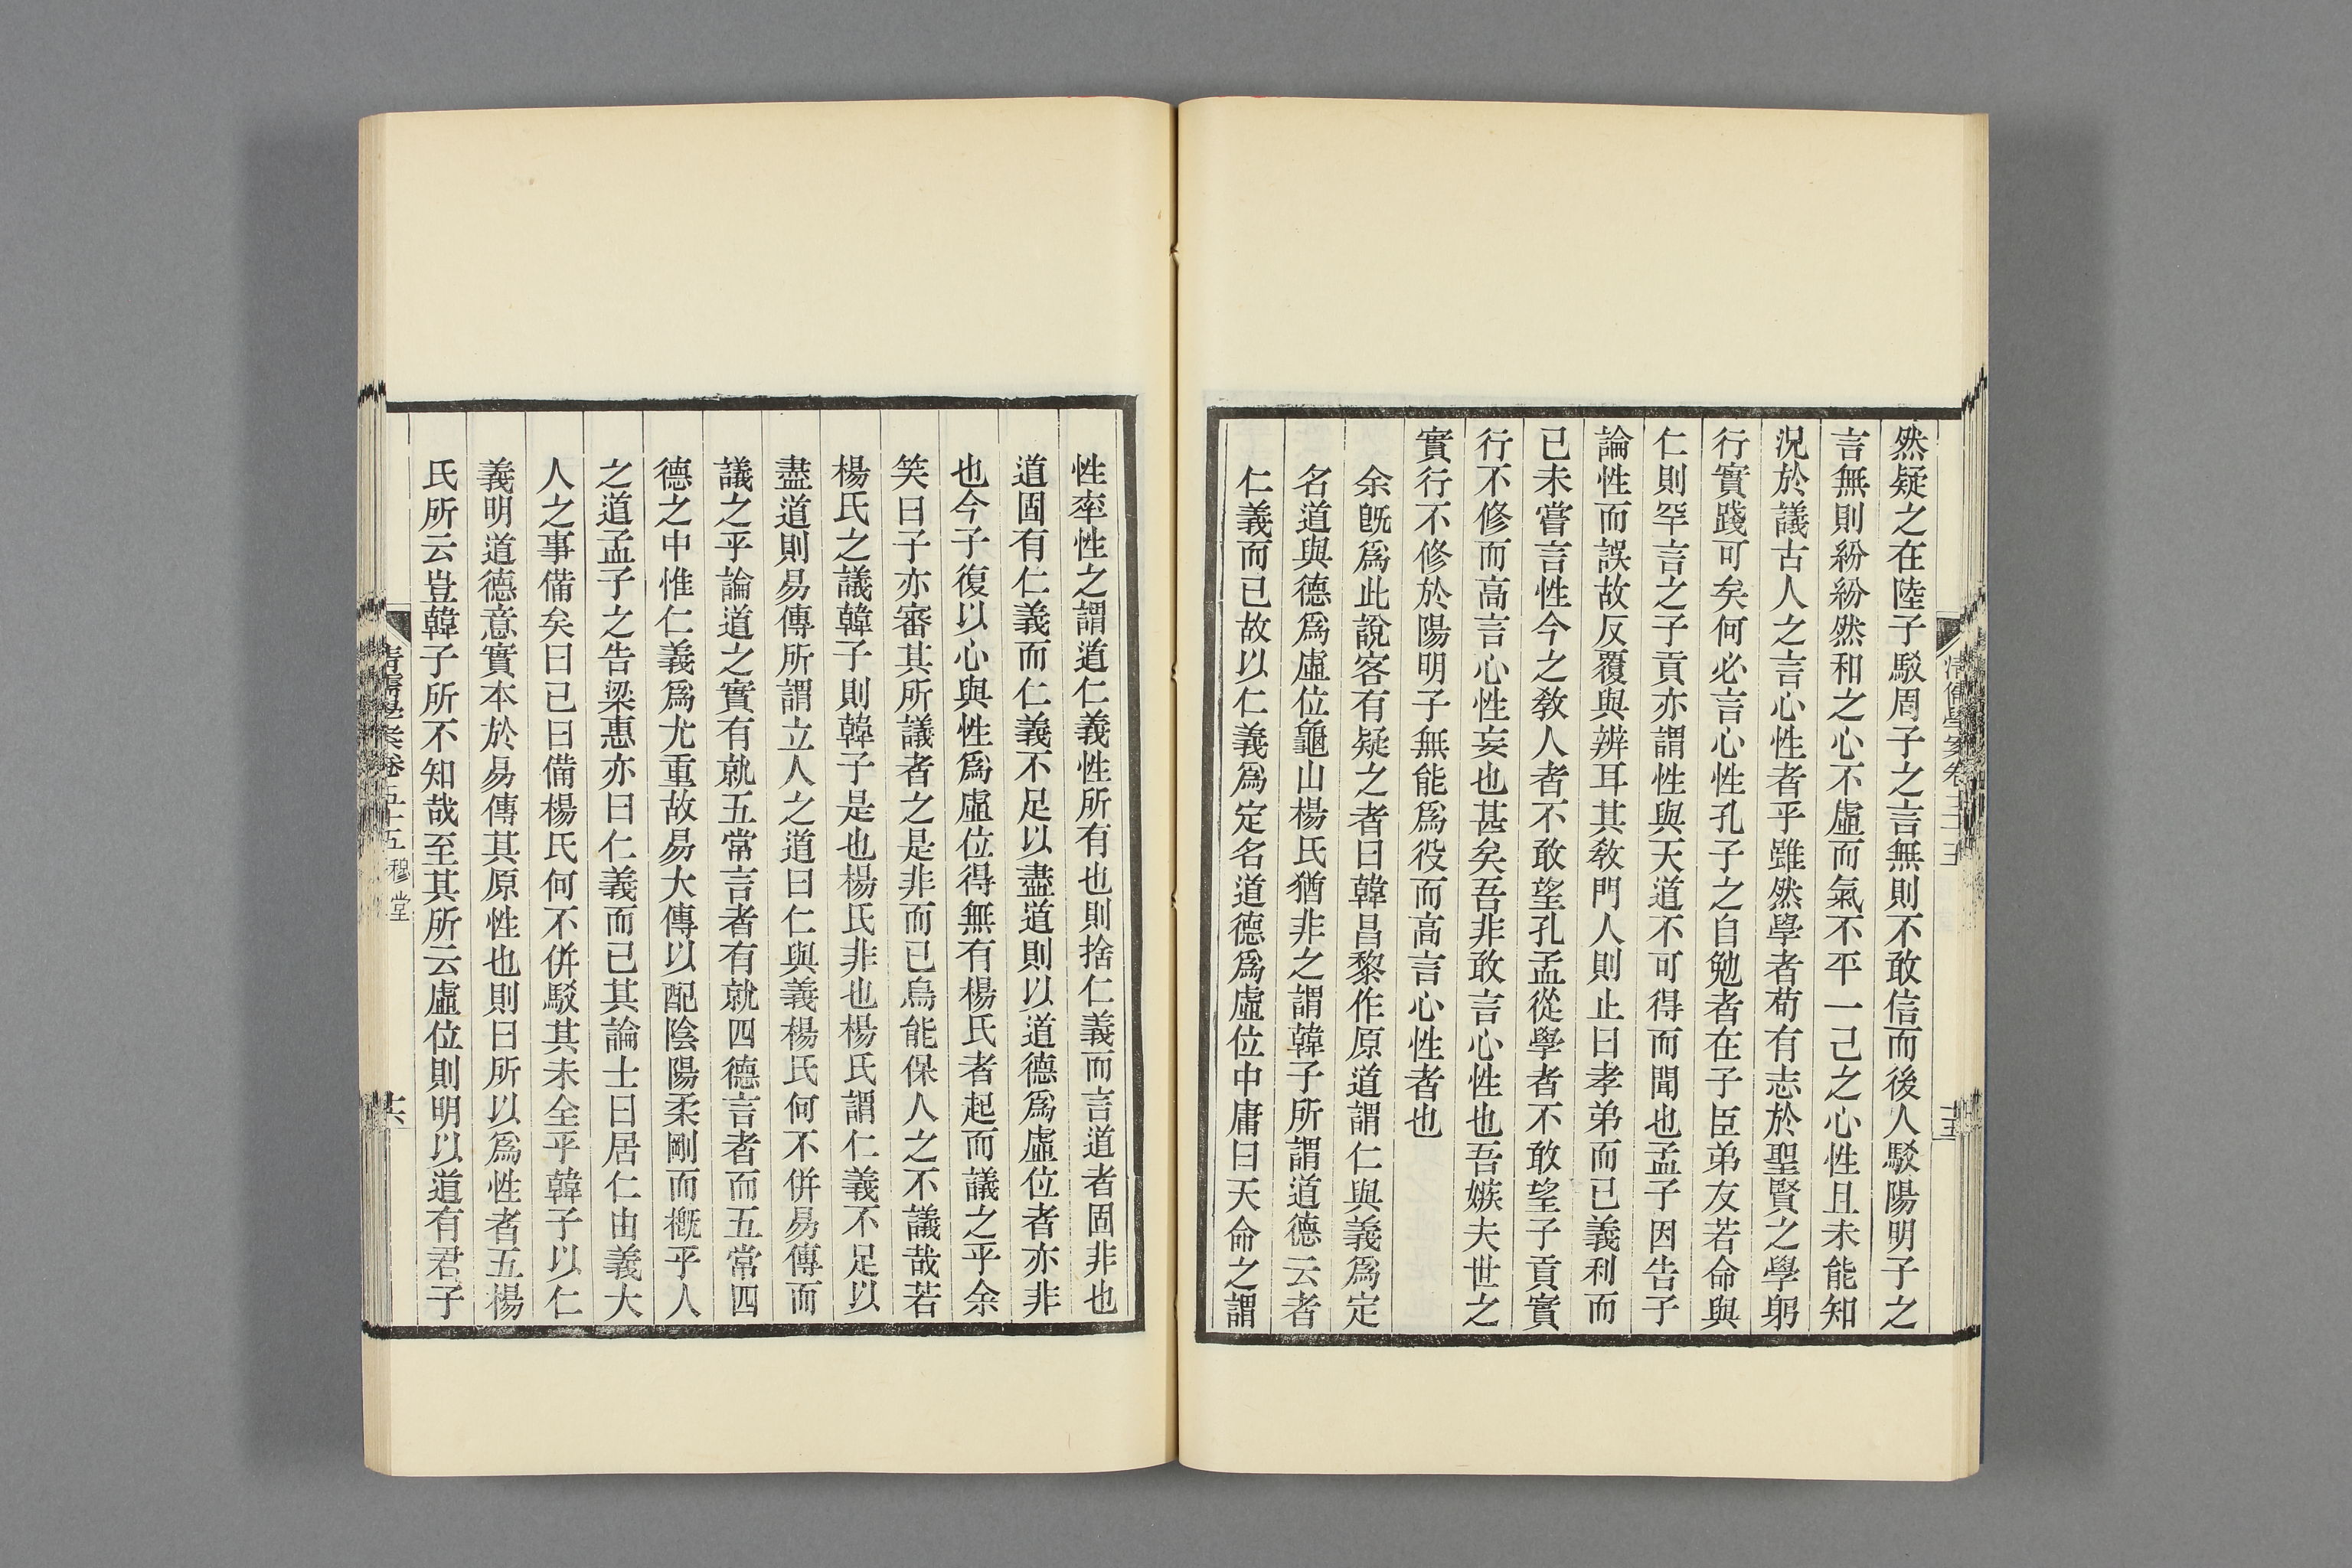 然疑之在陸子駁周子之言無則不敢信而後人駁陽明子之
言無則紛紛然和之心不虛而氣不平一己之心性且未能知
況於議古人之言心性者乎雖然學者苟有志於聖賢之學躬
行實踐可矣何必言心性孔子之自勉者在子臣弟友若命與
仁則罕言之子貢亦謂性與天道不可得而聞也孟子因告子
論性而誤故反覆與辨耳其敎門人則止曰孝弟而已義利而
已未嘗言性今之敎人者不敢望孔孟從學者不敢望子貢實
行不修而高言心性妄也甚矣吾非敢言心性也吾嫉夫世之
實行不修於陽明子無能爲役而高言心性者也
余旣爲此說客有疑之者曰韓昌黎作原道謂仁與義爲定
名道與德爲虛位龜山楊氏猶非之謂韓子所謂道德云者
仁義而已故以仁義爲定名道德爲虛位中庸曰天命之謂
性率性之謂道仁義性所有也則捨仁義而言道者固非也
道固有仁義而仁義不足以盡道則以道德爲虛位者亦非
也今子復以心與性爲虛位得無有楊氏者起而議之乎余
笑曰子亦審其所議者之是非而已烏能保人之不議哉若
楊氏之議韓子則韓子是也楊氏非也楊氏謂仁義不足以
盡道則易傳所謂立人之道曰仁與義楊氏何不併易傳而
議之乎論道之實有就五常言者有就四德言者而五常四
德之中惟仁義爲尤重故易大傳以配陰陽柔剛而槪乎人
之道孟子之告梁惠亦曰仁義而已其論士曰居仁由義大
人之事備矣曰已曰備楊氏何不併駁其未全乎韓子以仁
義明道德意實本於易傳其原性也則曰所以爲性者五楊
氏所云豈韓子所不知哉至其所云虛位則明以道有君子
清儒學案卷五十五 穆堂
十六